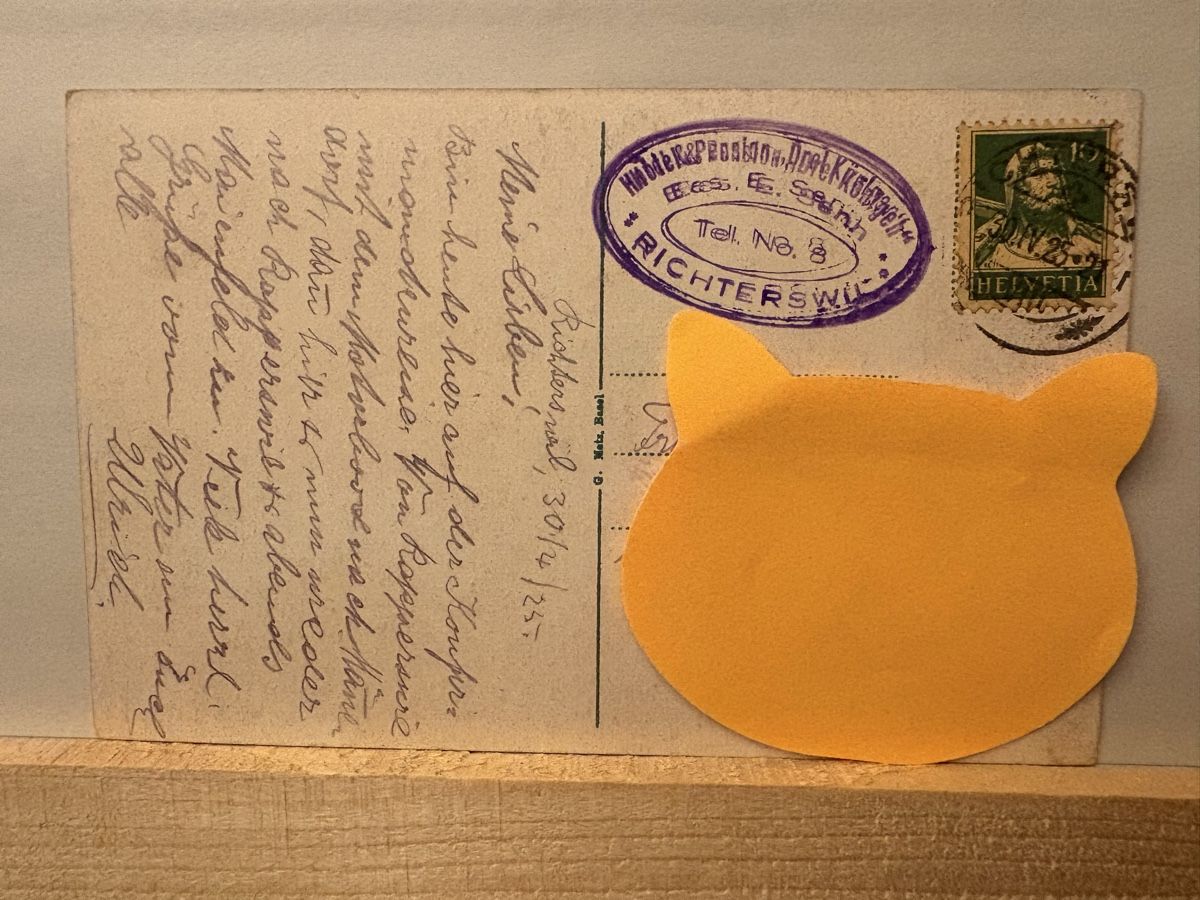 Richterswil, 30/4/25.
Meine Lieben,
Bin heute hier auf der Konfir-
mandenreise. Von Rapperswil
mit dem Motorboot nach Mäne-
dorf, dan̄ hier & nun wieder
nach Rapperswil & abends
Maienfeld zu. Viele herzl.
Grüße vom Euch
alle
Ulrich.
G. Metz, Basel
& Pension „Drei Königen“
Bes. E.
Tel. No. 8
RICHTERSWIL
10
HELVETIA